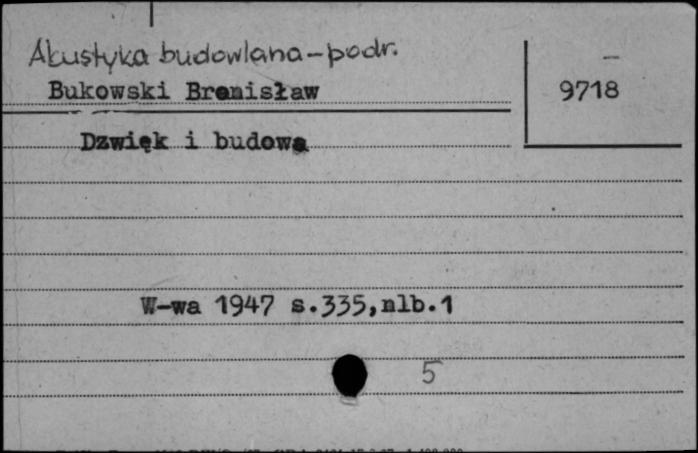 Akustyka budowlana-podr.
Bukowski Bronisław
9718
Dzwięk i budowa
W-wa 1947 s.335,nlb.1
5